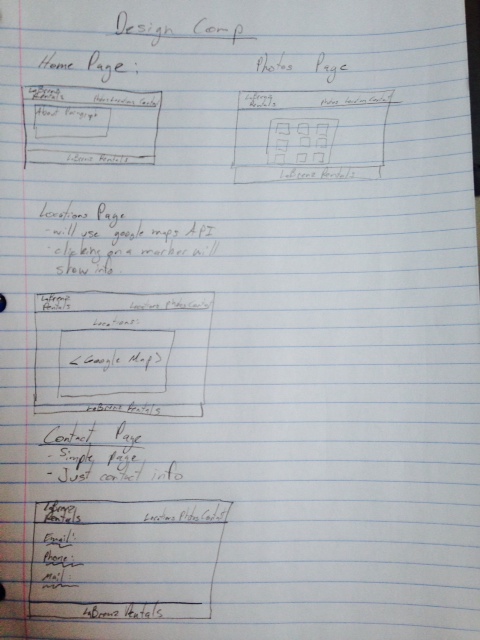 Design Comp
Home Page:
Photos Page
Rentals
Photos Locations Contact
About Paragraph
LaBrenz Rentals
Rentals
Photos Locations Contact
LaBrenz Rentals
Locations Page
- will use google maps API
- clicking on a marker will
show info.
LaBrenz
Rentals
Locations Photos Contact
Locations:
<Google Map>
LaBrenz Rentals
Contact Page
- Simple page
- Just contact info
LaBrenz
Rentals
Locations Photos Contact
Email:
Phone:
Mail
LaBrenz Rentals